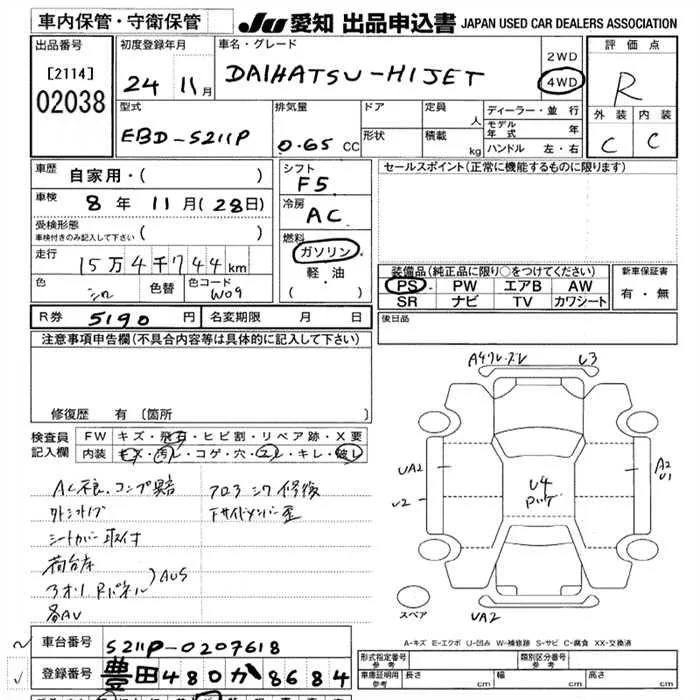 車内保管・守衛保管
JU 愛知 出品申込書 JAPAN USED CAR DEALERS ASSOCIATION
出品番号
[2114]
02038
初度登録年月
24 11月
車名・グレード
DAIHATSU-HIJET
2WD
4WD
評価点
R
外装 内装
C C
型式
EBD-S211P
排気量
0.65 CC
ドア
形状
定員 人
積載 kg
ディーラー・並行
モデル年式 年
ハンドル 左・右
車歴
自家用・( )
車検
8年 11月(28日)
受検形態
車検付きのみ記入して下さい ( )
走行
15万4千744km
色
シロ
色替
色コード
W09
シフト
F5
冷房
AC
燃料
ガソリン
軽・油
( )
セールスポイント(正常に機能するものに限ります)
装備品(純正品に限り○をつけてください)
PS PW エアB AW
SR ナビ TV カワシート
新車保証書
有・無
R券 5190円
名変期限 月 日
後日品
注意事項申告欄(不具合内容等は具体的に記入して下さい)
修復歴 有 〔箇所
検査員記入欄
FW キズ・飛石・ヒビ割・リペア跡・X要
内装 キズ・汚レ・コゲ・穴・スレ・キレ・破レ
AC不良、コンプ異音
シートカバー取付
荷台
アオリ Rパネル )AUS
各AU
フロア シワ 修復
下サイドメンバー歪
U3
UA2
U2
U4
A2
U1
UA2
スペア
A-キズ E-エクボ U-凹み W-補修跡 S-サビ C-腐食 XX-交換済
車台番号
S211P-0207618
登録番号
豊田480か8684
形式指定番号
参考
類別区分番号
参考
車庫証明用
参考
長さ cm
幅 cm
高さ cm